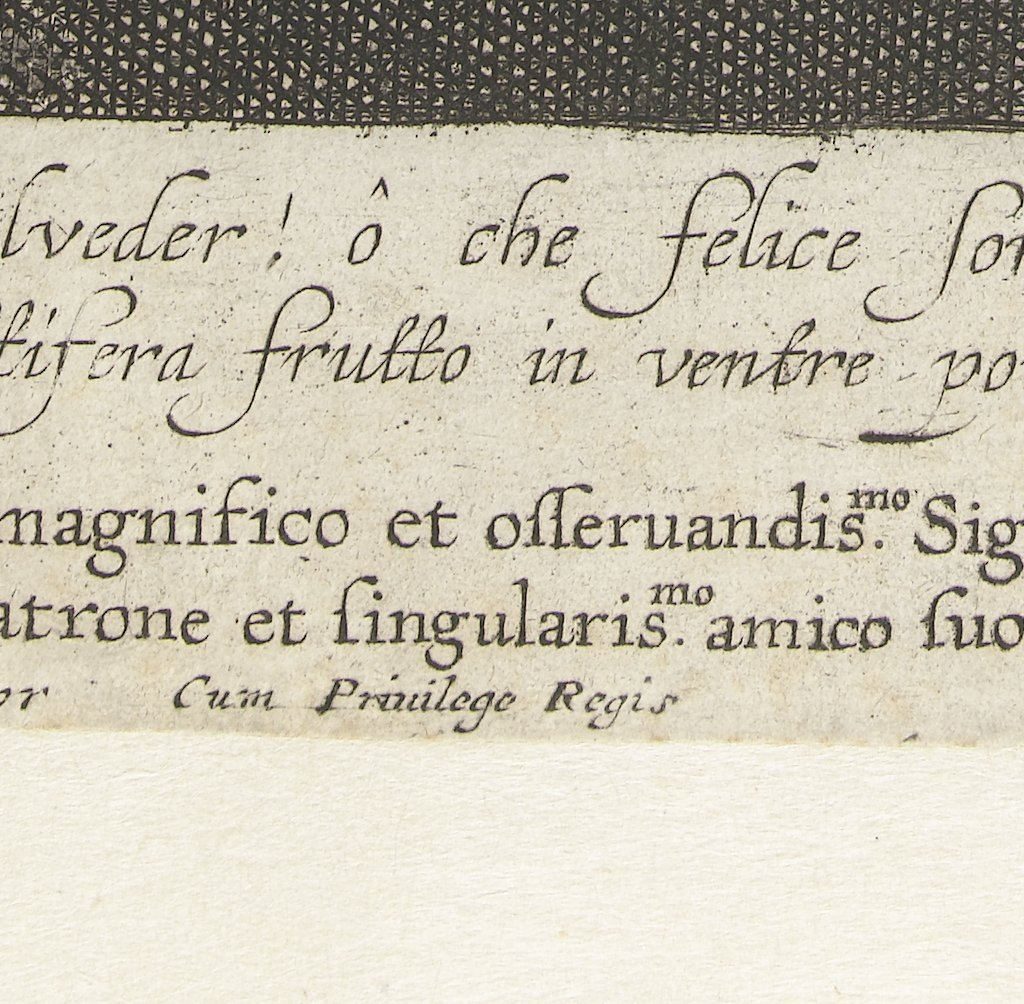 lveder! ô che felice ſor
ttifera frutto in ventre po
magnifico et oſſeruandis.mo Sig
atrone et ſingularis.mo amico ſuo
or Cum Priuilege Regis